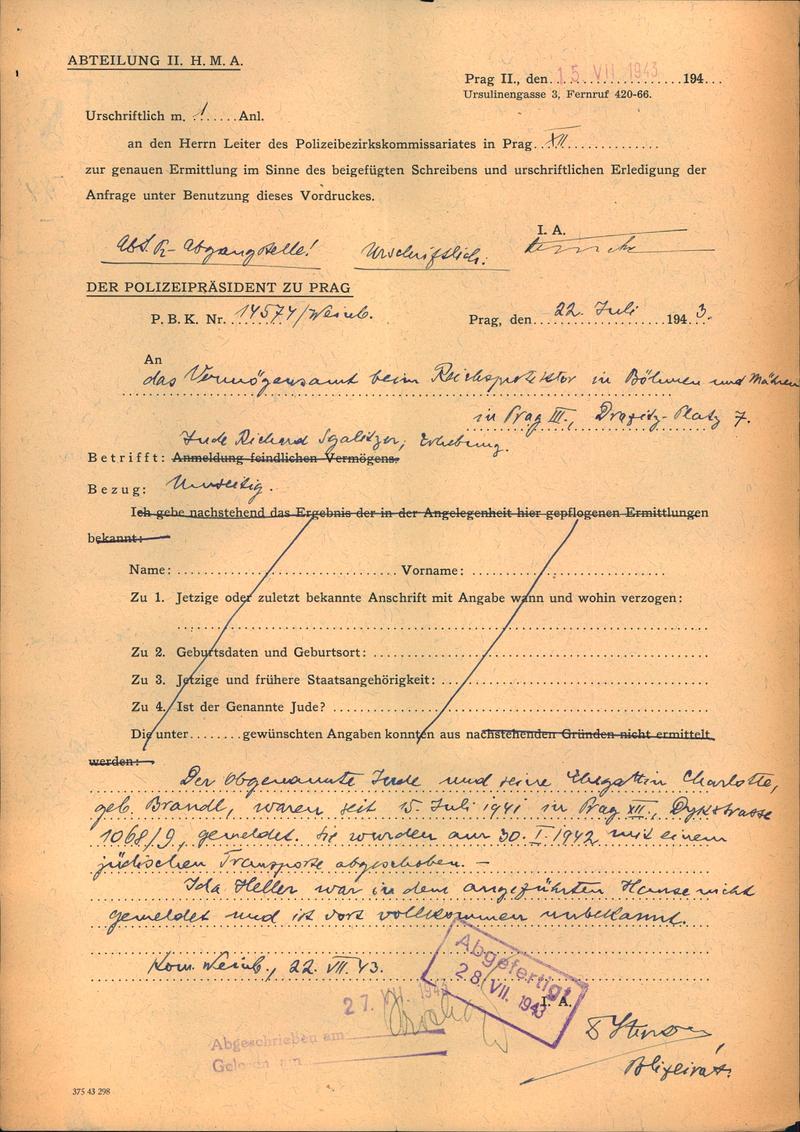 ABTEILUNG II. H. M. A.
Prag II., den 15 VII 1943 194
Ursulinengasse 3, Fernruf 420-66.
Urschriftlich m. 1 Anl.
an den Herrn Leiter des Polizeibezirkskommissariates in Prag XII
zur genauen Ermittlung im Sinne des beigefügten Schreibens und urschriftlichen Erledigung der
Anfrage unter Benutzung dieses Vordruckes.
I. A.
Abgangstelle! Urschriftlich:
DER POLIZEIPRÄSIDENT ZU PRAG
P. B. K. Nr. 14574/Weinb.
Prag, den 22. Juli 1943.
An
das Vermögensamt beim Reichsprotektor in Böhmen und Mähren
in Prag III., Platz 7.
Jude Richard Sgalitzer; Erhebung.
Betrifft: Anmeldung feindlichen Vermögens.
Bezug: Umseitig.
Ich gebe nachstehend das Ergebnis der in der Angelegenheit hier gepflogenen Ermittlungen
bekannt:
Name: Vorname:
Zu 1. Jetzige oder zuletzt bekannte Anschrift mit Angabe wann und wohin verzogen:
Zu 2. Geburtsdaten und Geburtsort:
Zu 3. Jetzige und frühere Staatsangehörigkeit:
Zu 4. Ist der Genannte Jude?
Die unter gewünschten Angaben konnten aus nachstehenden Gründen nicht ermittelt
werden:
Der Obgenannte Jude und seine Ehegattin Charlotte,
geb. Brandl, waren seit 15. Juli 1941 in Prag XII., Dykstrasse
1068/9, gemeldet. Sie wurden am 30. I. 1942 mit einem
jüdischen Transporte abgeschoben. —
Ida Heller war in dem angeführten Hause nicht
gemeldet und ist dort vollkommen unbekannt.
Kom. Weinb., 22. VII. 43.
Abgefertigt
28. VII. 1943
27. VII. 1943
I. A.
Abgeschrieben am
Gelesen am
Polizeirat.
375 43 298